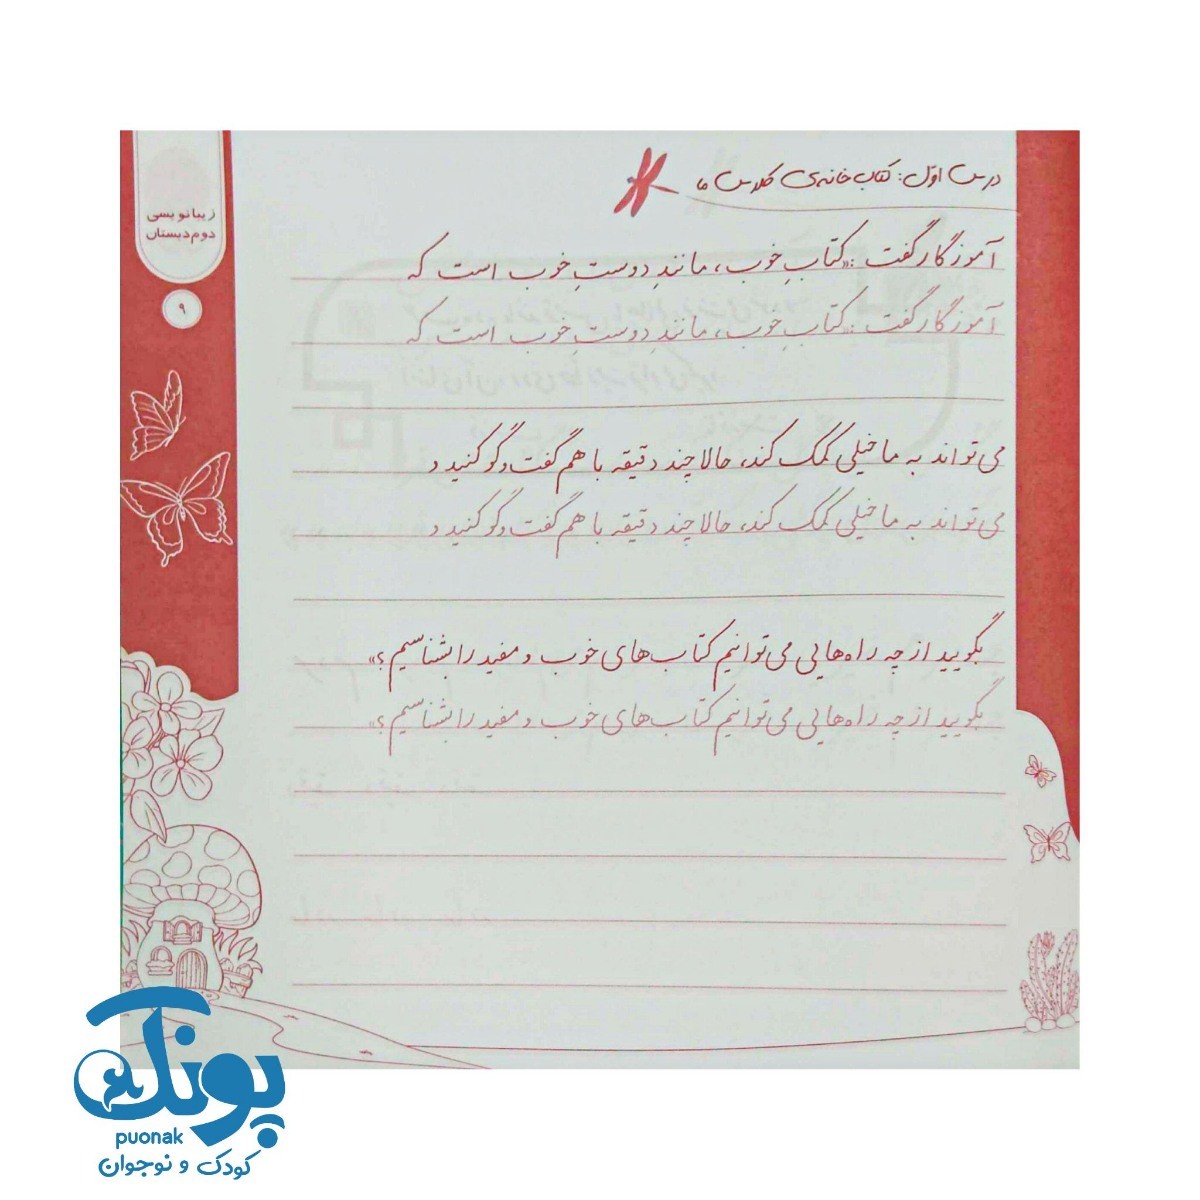 درس اوّل: کتاب‌خانه‌ی کلاس ما
زیبانویسی
دوم دبستان
۹
آموزگار گفت: «کتابِ خوب، مانندِ دوستِ خوب است که
آموزگار گفت: «کتابِ خوب، مانندِ دوستِ خوب است که
می‌تواند به ما خیلی کمک کند، حالا چند دقیقه با هم گفت‌وگو کنید و
می‌تواند به ما خیلی کمک کند، حالا چند دقیقه با هم گفت‌وگو کنید و
بگویید از چه راه‌هایی می‌توانیم کتاب‌های خوب و مفید را بشناسیم؟»
بگویید از چه راه‌هایی می‌توانیم کتاب‌های خوب و مفید را بشناسیم؟»
پونک
puonak
کودک و نوجوان